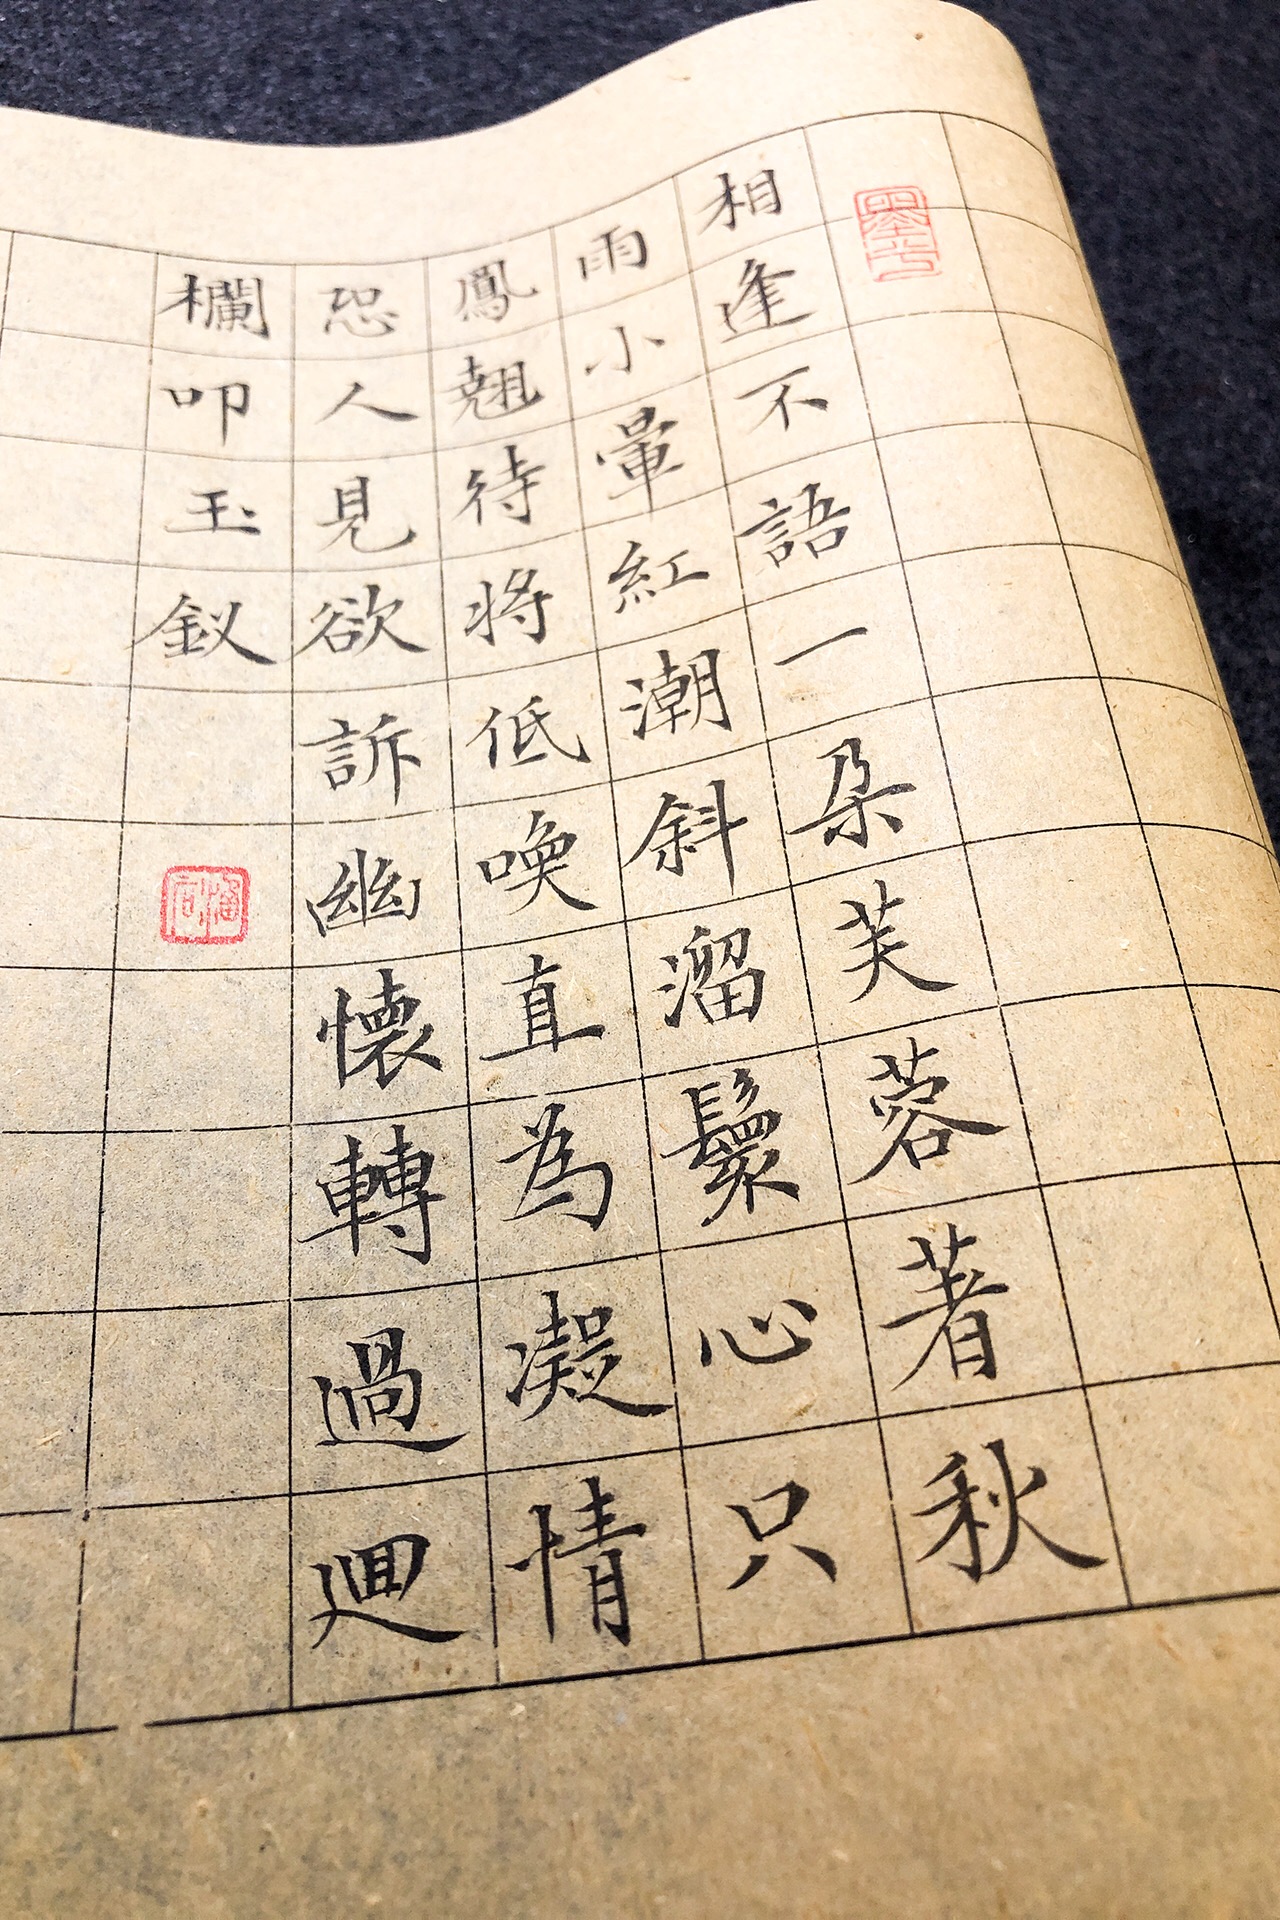 相逢不語一朵芙蓉著秋
雨小暈紅潮斜溜鬟心只
鳳翹待將低喚直為凝情
恐人見欲訴幽懷轉過迴
欄叩玉釵